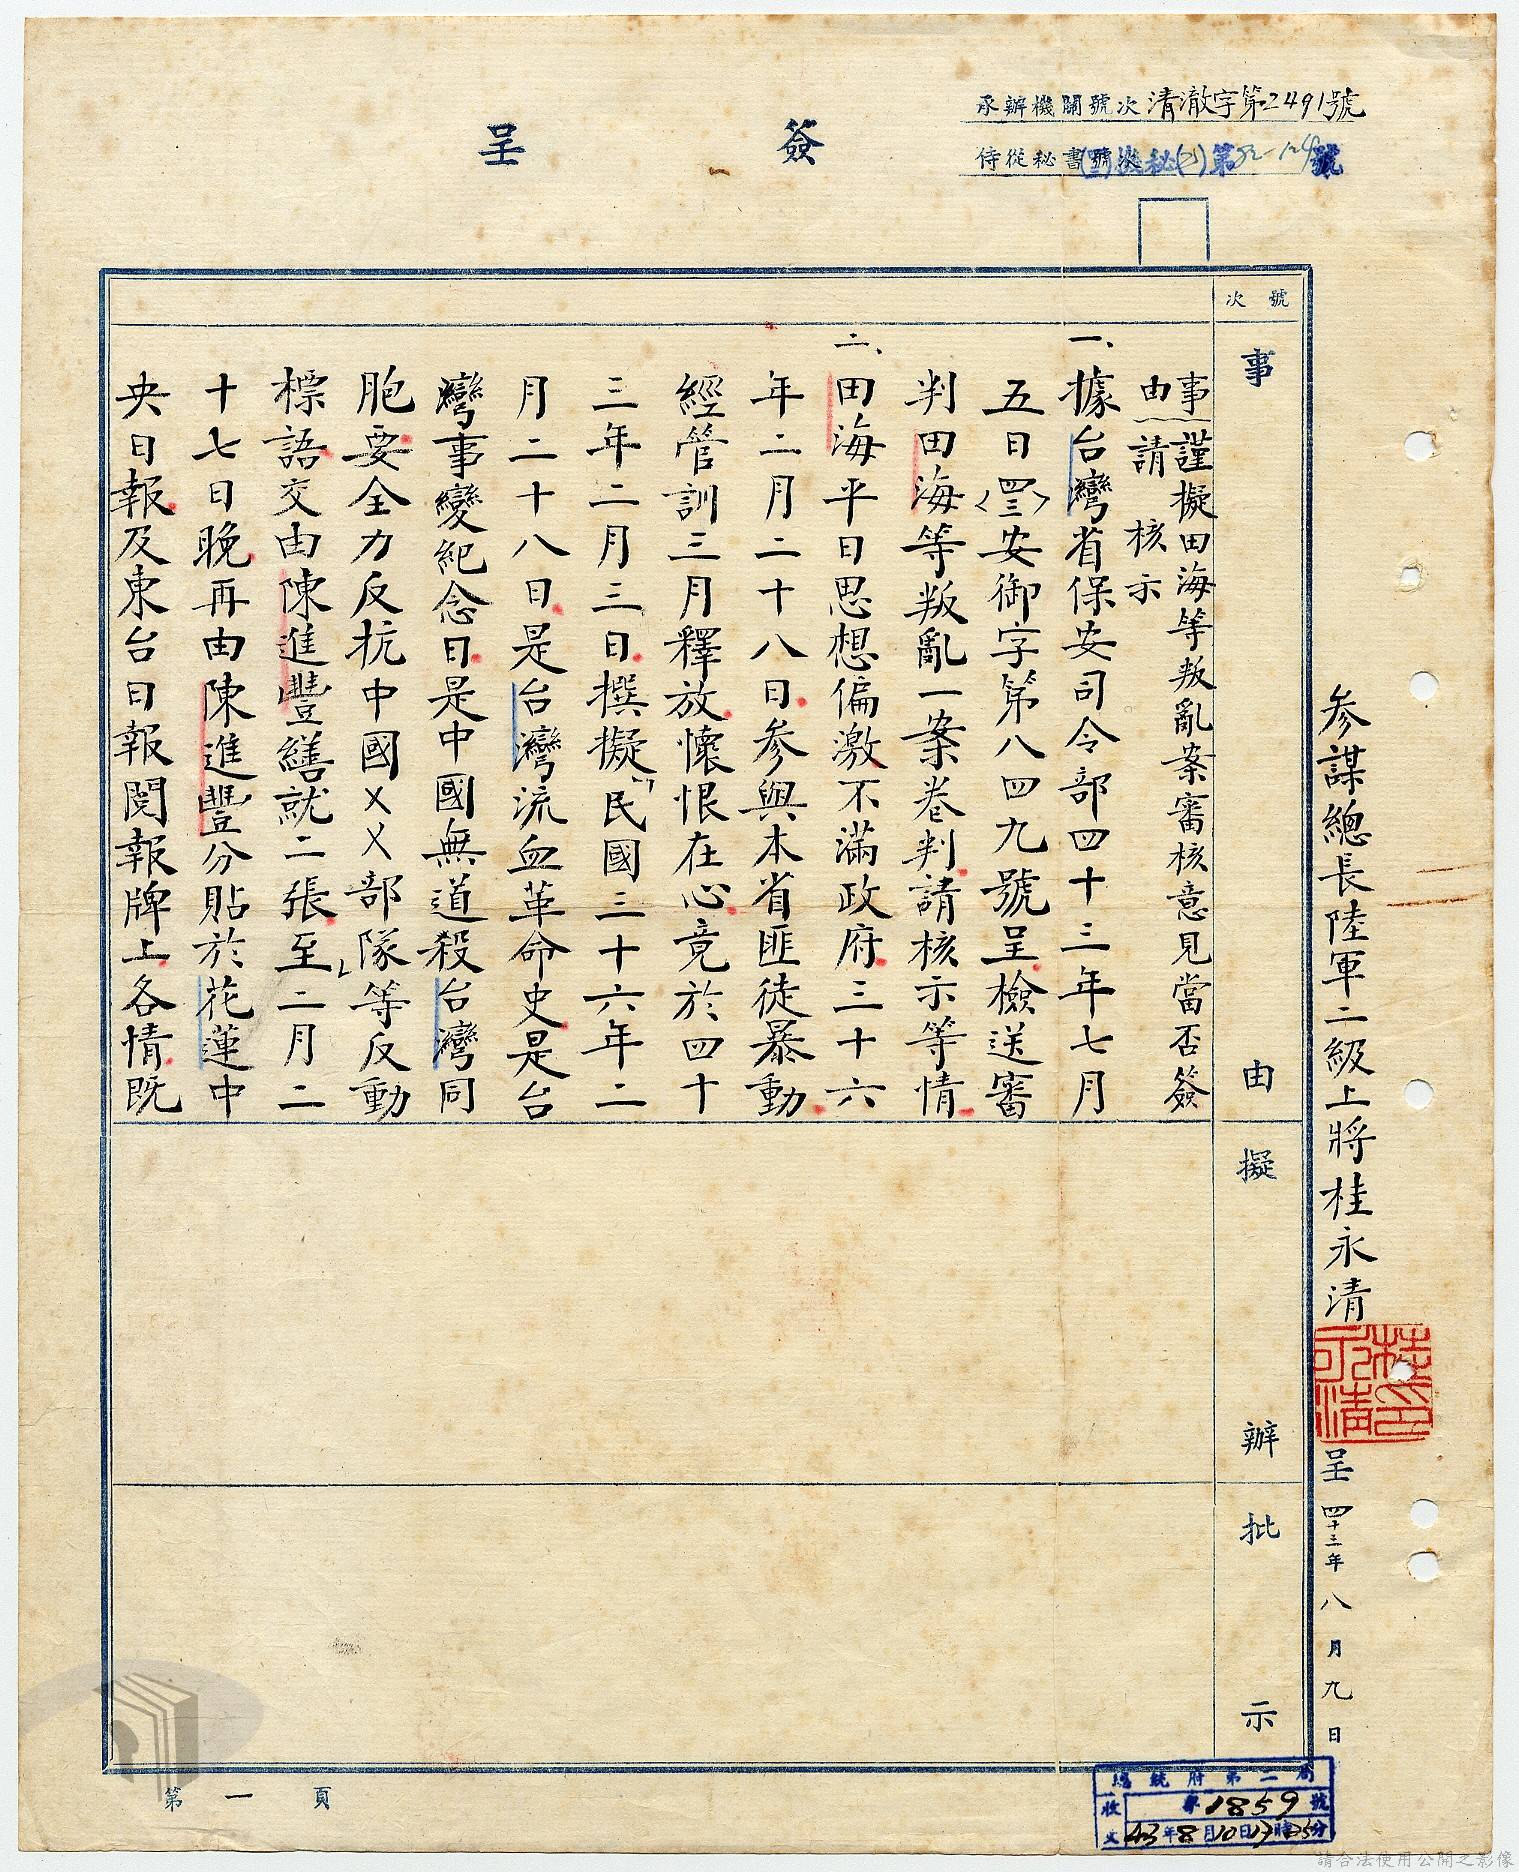 簽呈
承辦機關號次 清澈字第2491號
侍從秘書號次
參謀總長陸軍二級上將桂永清
桂永清印
呈 四十三年八月九日
號次
事由
擬辦
批示
事由 謹擬田海等叛亂案審核意見當否簽
請 核示
一、據台灣省保安司令部四十三年七月
五日〈四三〉安御字第八四九號呈檢送審
判田海等叛亂一案卷判請核示等情
二、田海平日思想偏激不滿政府三十六
年二月二十八日參與本省匪徒暴動
經管訓三月釋放懷恨在心竟於四十
三年二月三日撰擬「民國三十六年二
月二十八日是台灣流血革命史是台
灣事變紀念日是中國無道殺台灣同
胞要全力反抗中國××部隊」等反動
標語交由陳進豐繕就二張至二月二
十七日晚再由陳進豐分貼於花蓮中
央日報及東台日報閱報牌上各情既
第一頁
總統府第二局
收文 第1859號
43年8月10日17時 分
請合法使用公開之影像